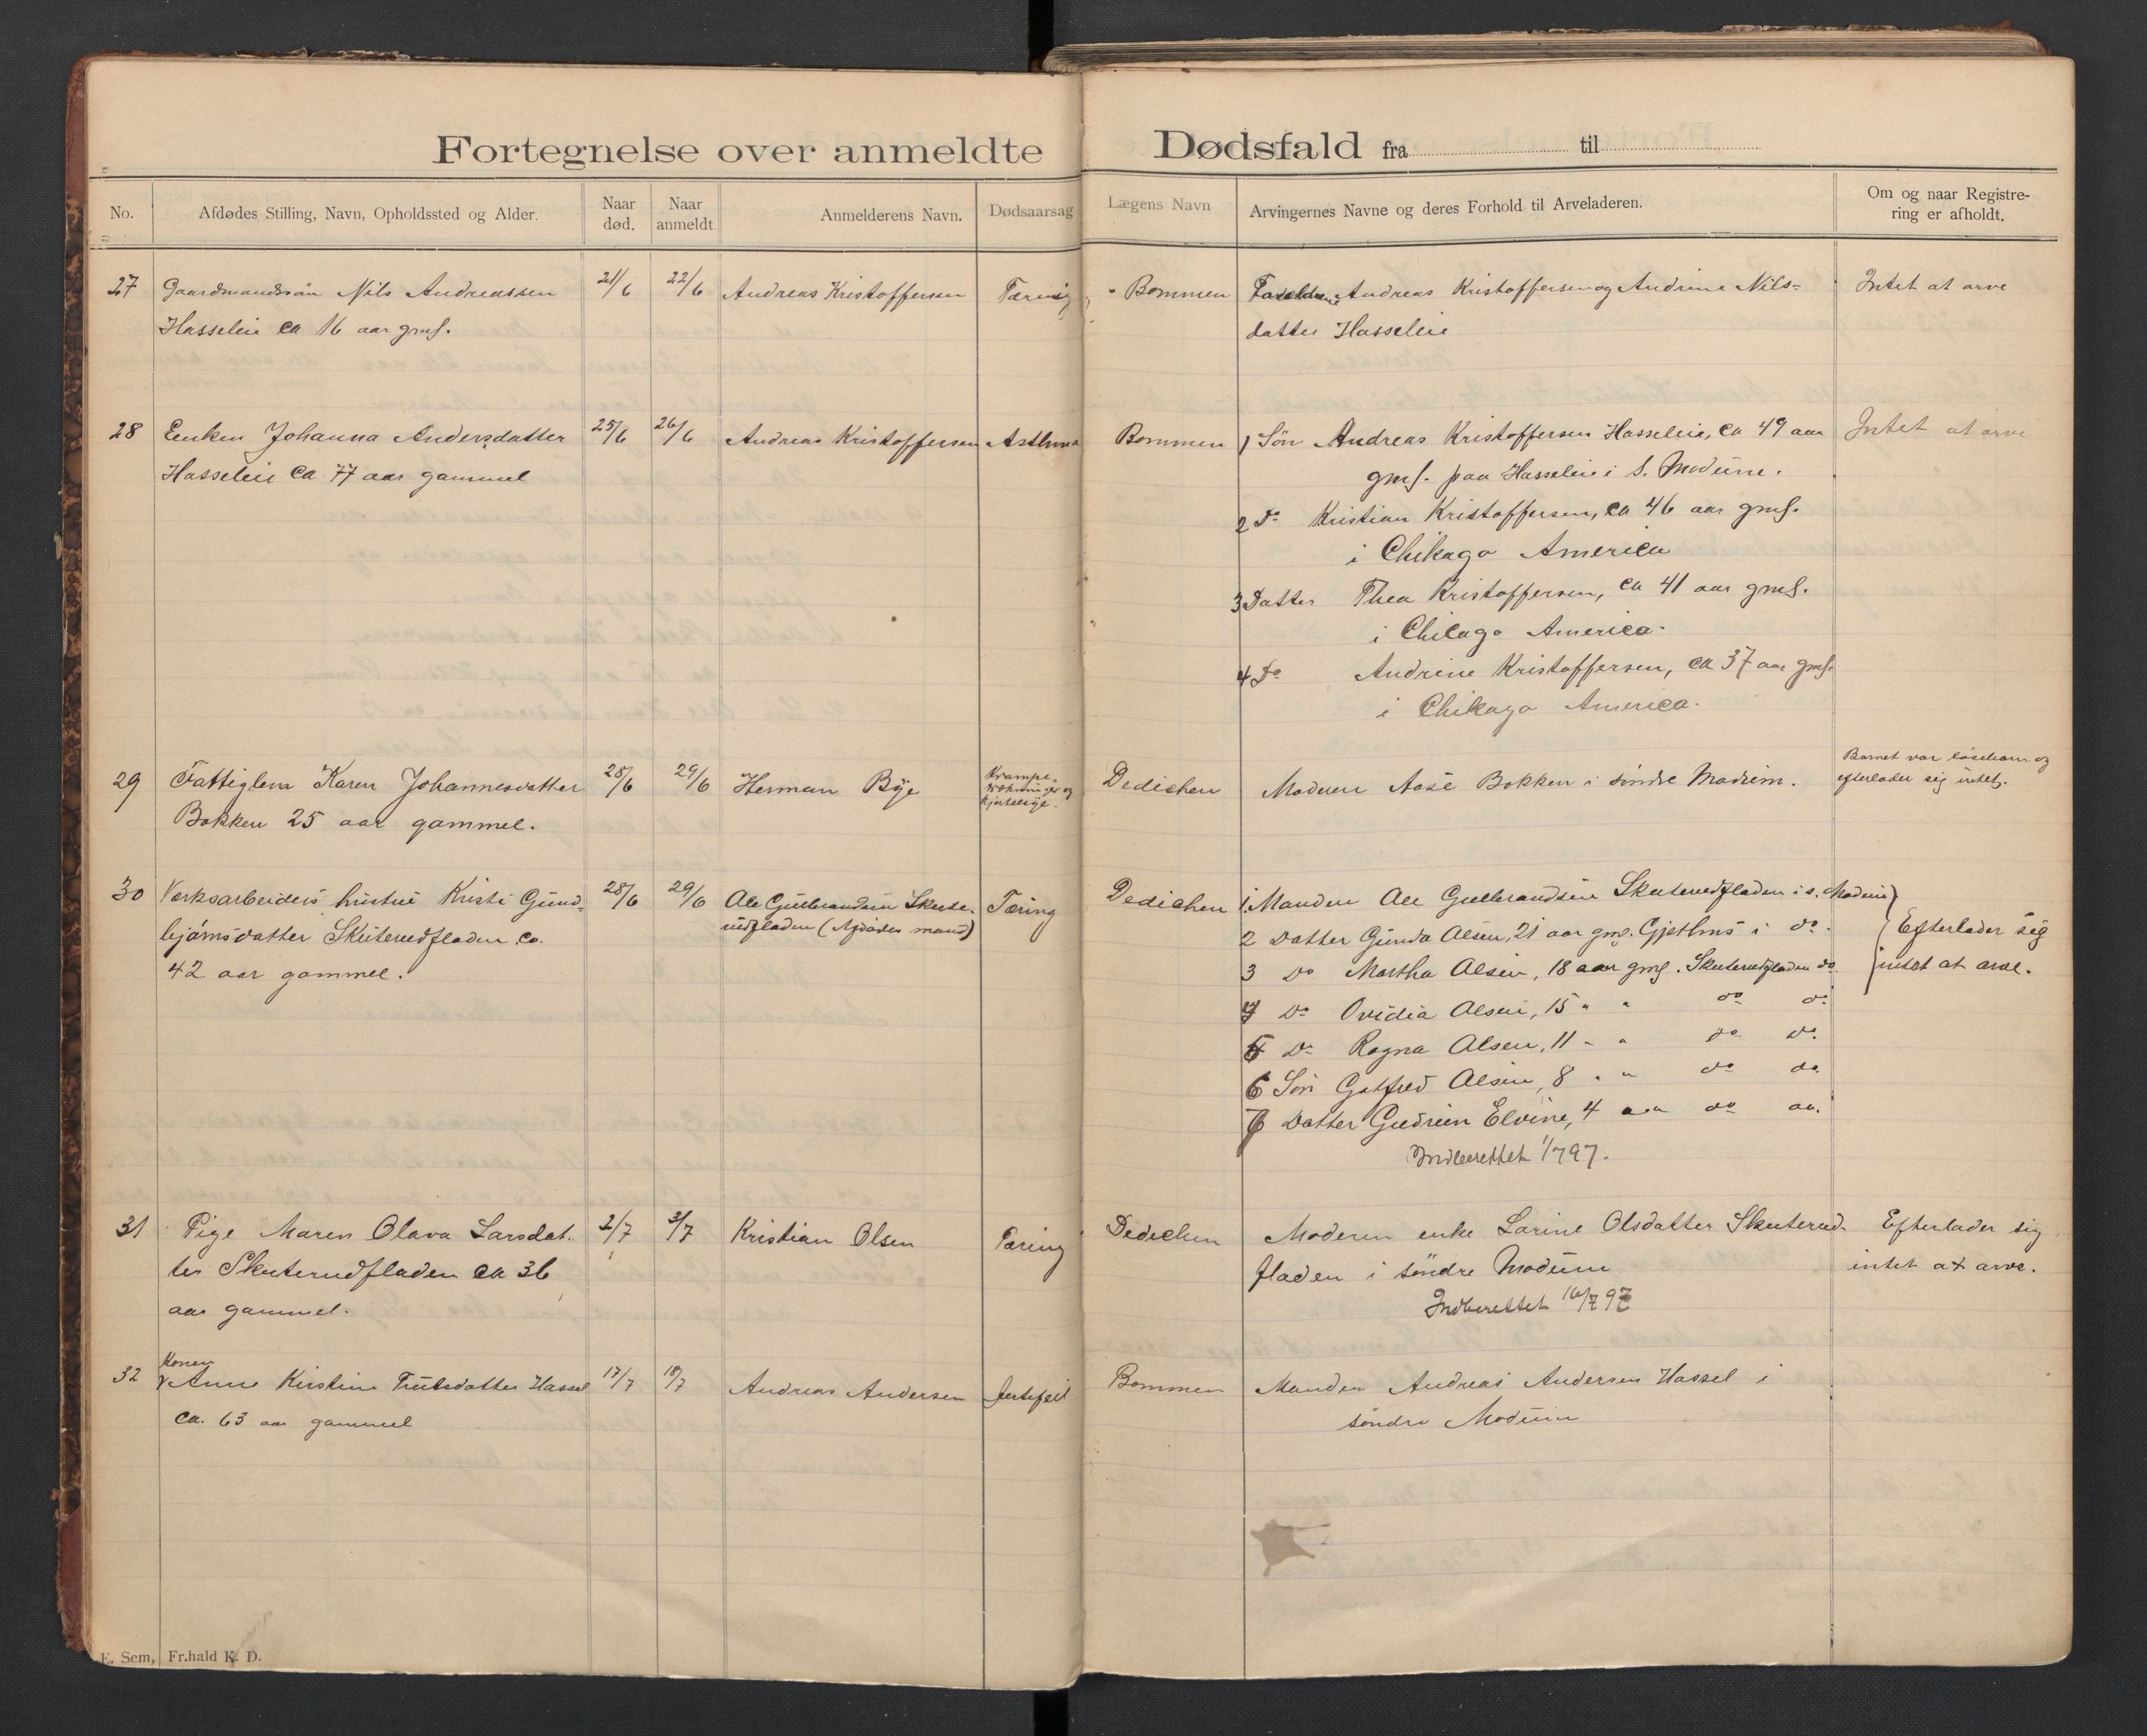 Fortegnelse over anmeldte Dødsfald fra til
No. Afdødes Stilling, Navn, Opholdssted og Alder. Naar død. Naar anmeldt Anmelderens Navn. Dødsaarsag Lægens Navn Arvingernes Navne og deres Forhold til Arveladeren. Om og naar Registre-
ring er afholdt.
27 Gaardmandssön Nils Andreassen 21/6 22/6 Andreas Kristoffersen Tæring Bommen Forældrene Andreas Kristoffersen og Andrine Nils- Intet at arve
Hasseleie ca 16 aar gml. datter Hasseleie
28 Enken Johanna Andersdatter 25/6 26/6 Andreas Kristoffersen Asthma Bommen 1 Sön Andreas Kristoffersen Hasseleie, ca 49 aar Intet at arve
Hasseleie ca 77 aar gammel gml. paa Hasseleie i S. Modum.
2 Do Kristian Kristoffersen, ca 46 aar gml.
i Chikago America
3 Datter Thea Kristoffersen, ca 41 aar gml.
i Chicago America.
4 Do Andrine Kristoffersen, ca 37 aar gml.
i Chikago America.
29 Fattiglem Karen Johannesdatter 28/6 29/6 Herman Bye Krampe- og Dedichen Moderen Aase Bokken i söndre Modum. Barnet var lösebarn og
Bokken 25 aar gammel. efterlader sig intet.
30 Verksarbeiders hustru Kristi Gund- 28/6 29/6 Ole Gulbrandsen Skute- Tæring Dedichen 1. Manden Ole Gulbrandsen Skuterudfladen i s. Modum
björnsdatter Skuterudfladen ca. rudfladen (Afdödes mand) 2 Datter Gunda Olsen, 21 aar gml. Gjethus i do. Efterlader sig
42 aar gammel. 3 Do Martha Olsen, 18 aar gml. Skuterudfladen do. intet at arve.
4 Do Ovidia Olsen, 15 " " do do.
5 Do Ragna Olsen, 11 " " do do.
6 Sön Gotfred Olsen, 8 " " do do.
7 Datter Gudrun Elvine, 4 " " do do.
Indberettet 1/7 97.
31 Pige Maren Olava Larsdat- 2/7 3/7 Kristian Olsen Tæring Dedichen Moderen enke Larine Olsdatter Skuterud- Efterlader sig
ter Skuterudfladen ca 36 fladen i söndre Modum intet at arve.
aar gammel. Indberettet 16/7 97
Konen
32 Anne Kirstine Trulsdatter Hassel 17/7 18/7 Andreas Andersen hjertefeil Bommen Manden Andreas Andersen Hassel i
ca. 63 aar gammel söndre Modum
E. Sem, Fr.hald K. D.